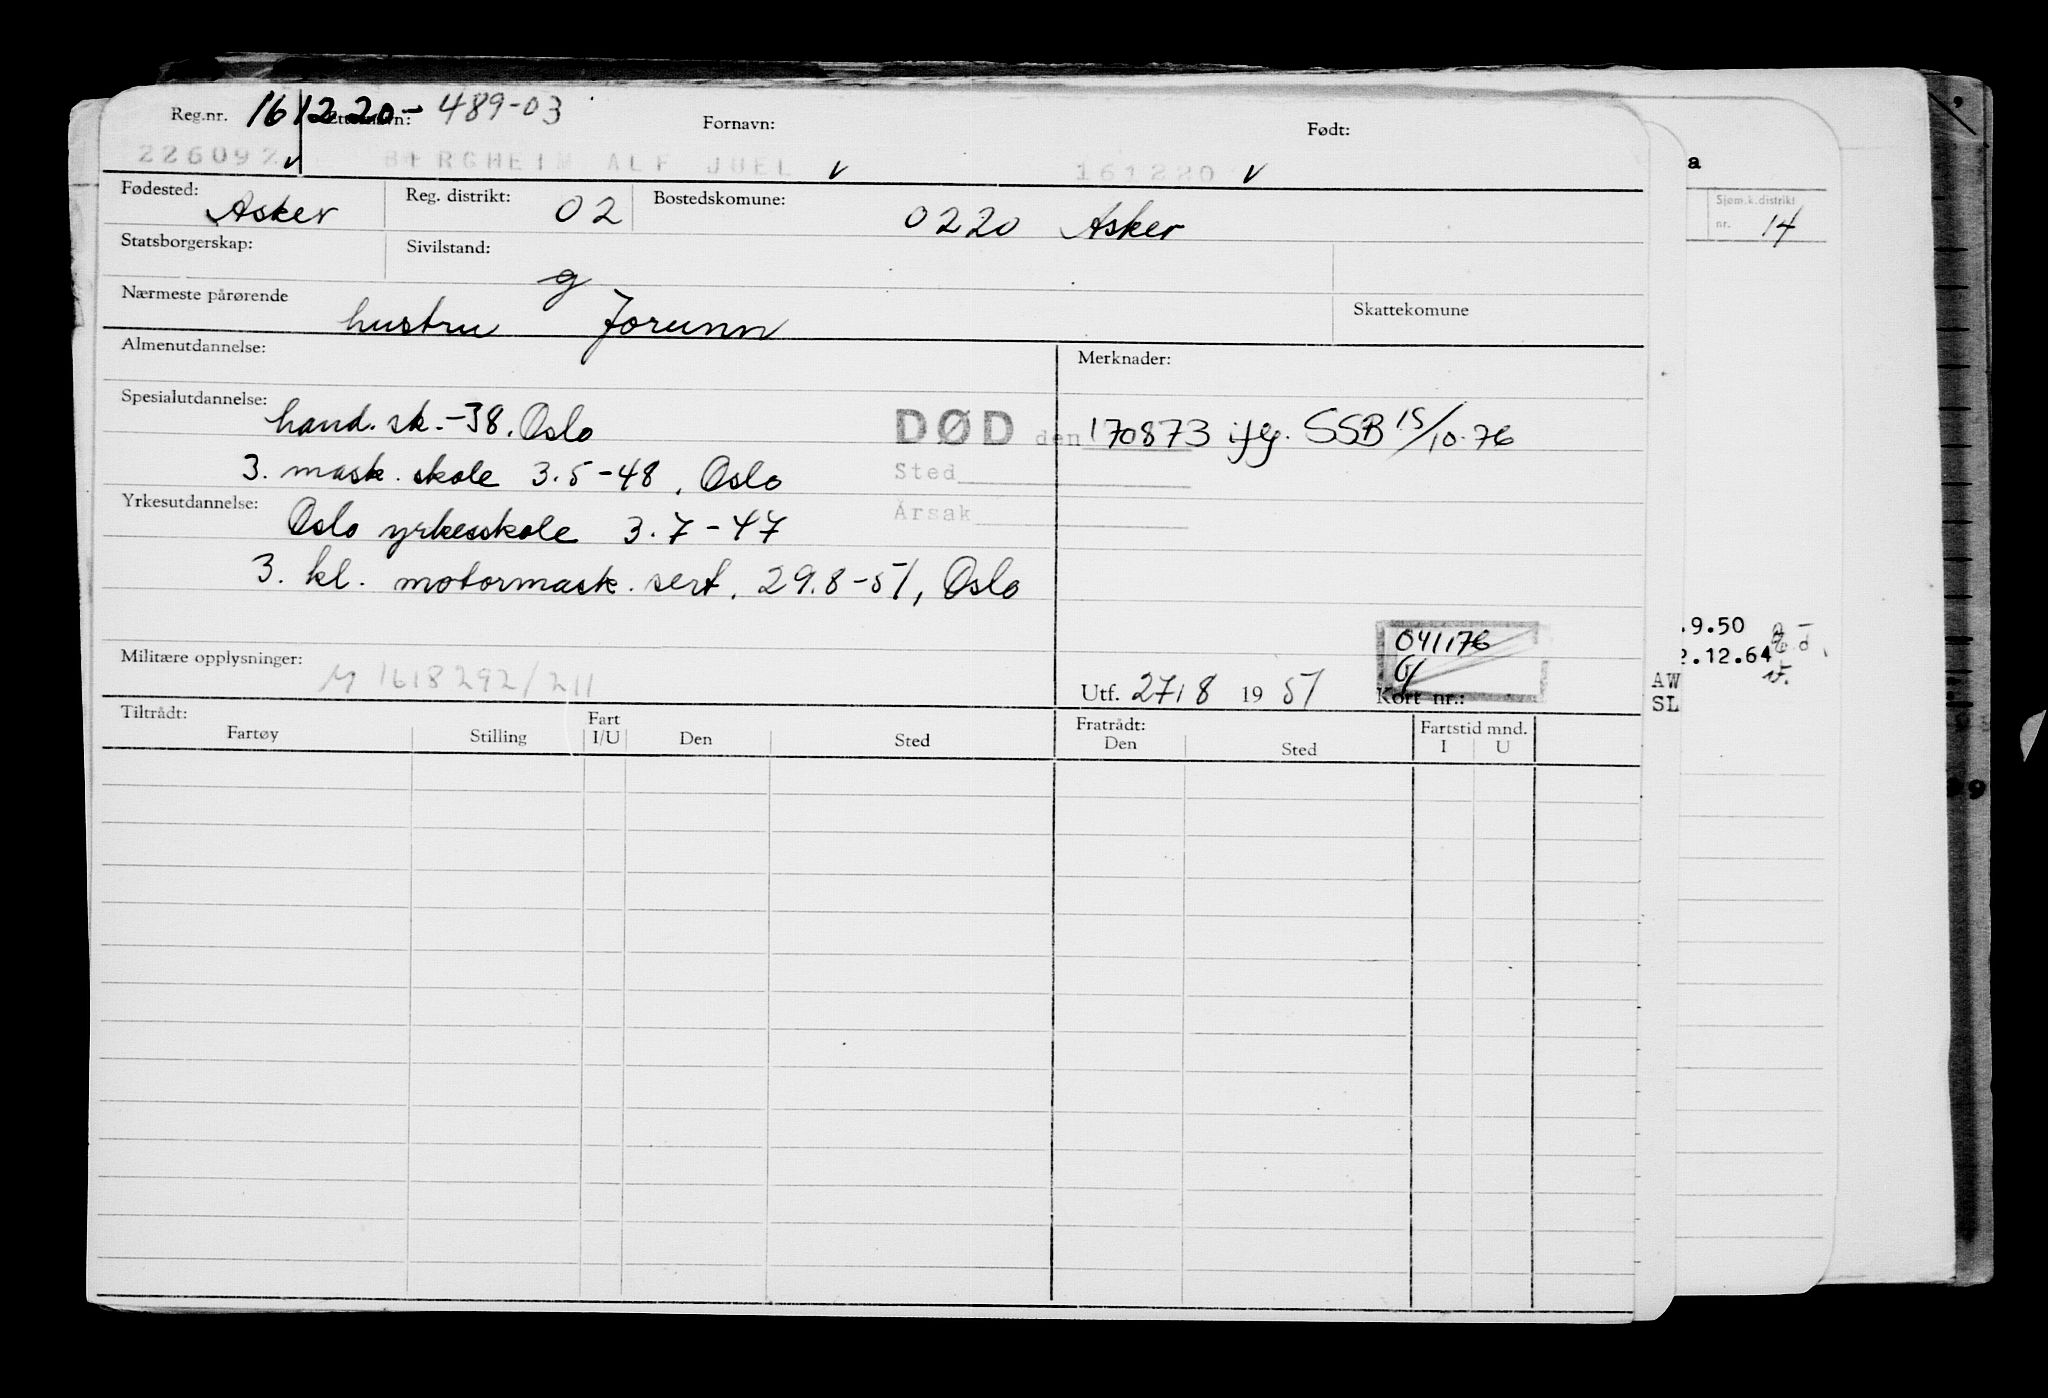 Reg.nr. 161220- 489-03 Fornavn: Født:
226092 v BERGHEIM ALF JUEL v 161220 v
Fødested: Asker Reg. distrikt: 02 Bostedskomune: 0220 Asker
Statsborgerskap: Sivilstand: g
Nærmeste pårørende hustru Jorunn Skattekomune
Almenutdannelse: Merknader:
Spesialutdannelse: hand. sk. -38. Oslo DØD den 170873 ifg. SSB 15/10-76
3. mask. skole 3.5-48, Oslo Sted
Yrkesutdannelse: Oslo yrkesskole 3.7-47 Årsak
3. kl. motormask. sert. 29.8-51, Oslo
041176
Militære opplysninger: M 1618292/211 Utf. 27/8 19 51 Kort nr.:
Tiltrådt: Fratrådt:
Fartøy Stilling Fart I/U Den Sted Den Sted Fartstid mnd. I U
a
Sjøm.k.distrikt
nr. 14
.9.50
2.12.64
AW
SL
9